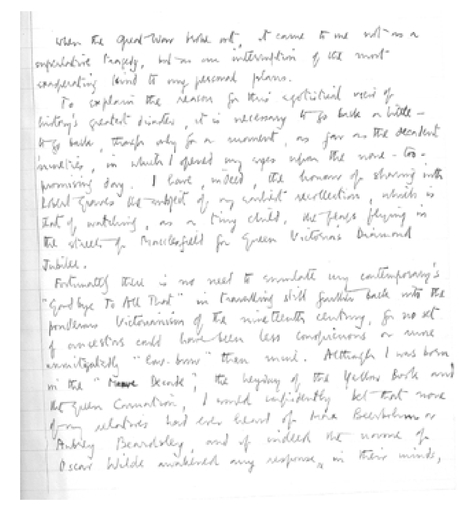 When the Great War broke out, it came to me not as a
superlative tragedy, but as an interruption of the most
exasperating kind to my personal plans.
To explain the reason for this egotistical view of
history's greatest disaster, it is necessary to go back a little -
to go back, though only for a moment, as far as the decadent
'nineties, in which I opened my eyes upon the none - too -
promising day. I have, indeed, the honour of sharing with
Robert Graves the subject of my earliest recollection, which is
that of watching, as a tiny child, the flags flying in
the streets of Macclesfield for Queen Victoria's Diamond
Jubilee.
Fortunately there is no need to emulate my contemporary's
"Good-bye To All That" in travelling still further back into the
ponderous Victorianism of the nineteenth century, for no set
of ancestors could have been less conspicuous or more
unmitigatedly "low-brow" than mine. Although I was born
in the " Decade", the heyday of the Yellow Book and
the Green Carnation, I would confidently bet that none
of my relatives had ever heard of Max Beerbohm or
Aubrey Beardsley, and if indeed the name of
Oscar Wilde awakened any response in their minds,